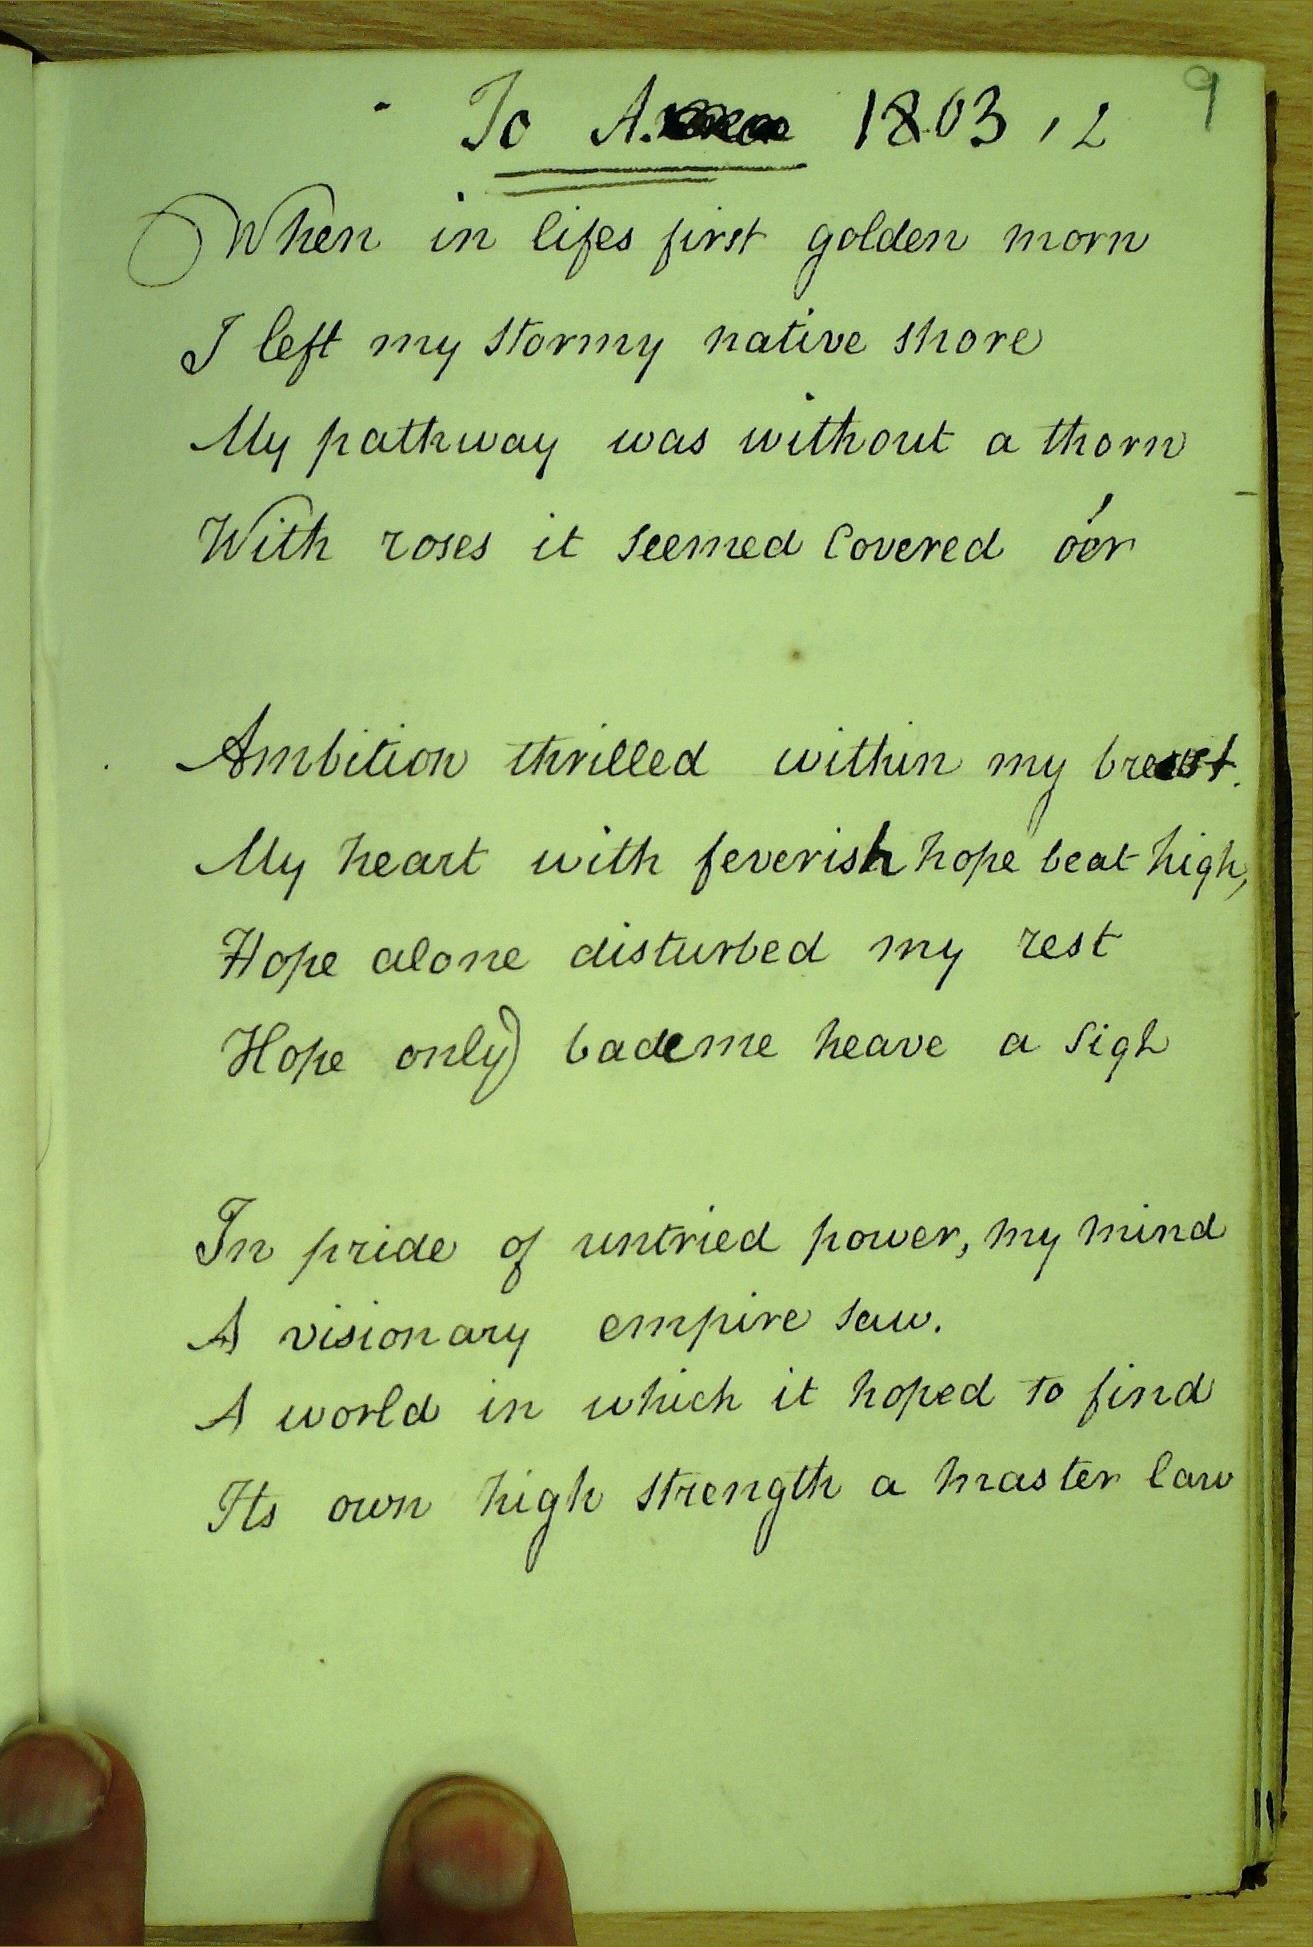 9
To A. 1803, 2
When in lifes first golden morn
I left my stormy native shore
My pathway was without a thorn
With roses it seemed Covered óer
Ambition thrilled within my breast.
My heart with feverish hope beat high,
Hope alone disturbed my rest
Hope only bade me heave a sigh
In pride of untried power, my mind
A visionary empire saw.
A world in which it hoped to find
Its own high strength a master law